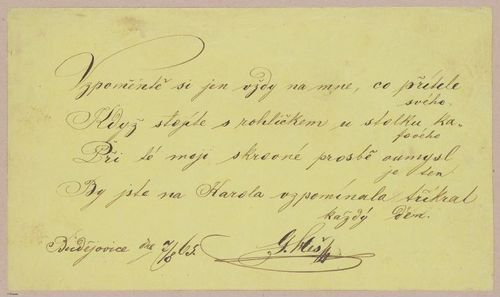 Vzpomínté si jen vždy na mne, co přítele
svého.
Když stojíte s rohlíčkem u stolku ka-
fového
Při té moji skrovné prosbě oumysl
je ten
By jste na Karola vzpomínala třikrat
každý den.
Budějovice dne